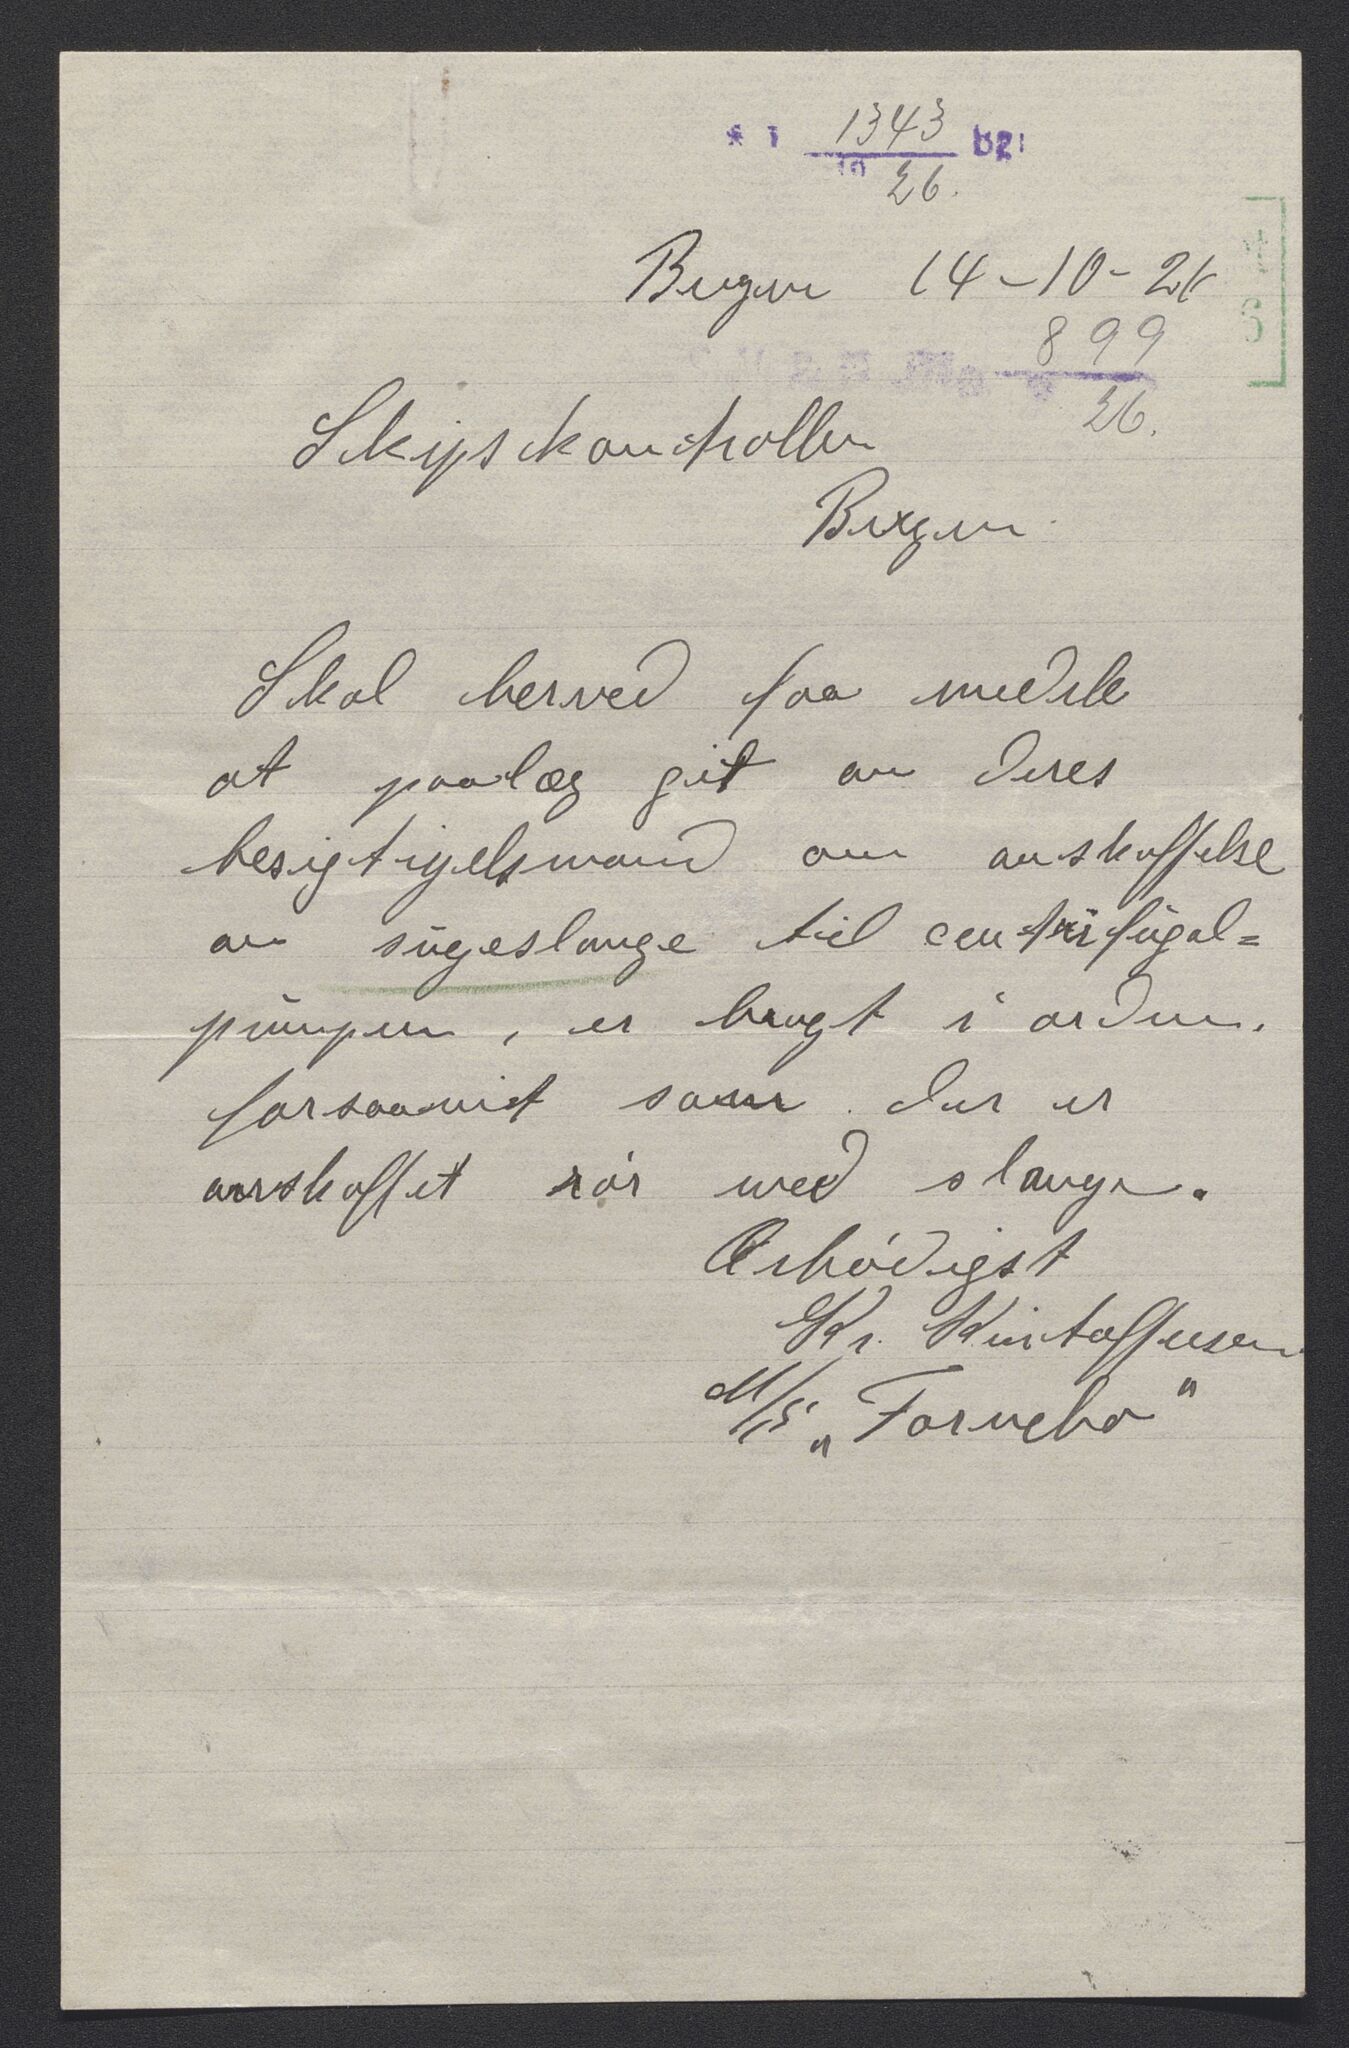 1343
10 26.
Bergen 14-10-26
899
26.
Skipskontrollen
Bergen.
Skal herved faa meddele
at paalæg git av Deres
besigtigelsmand om anskaffelse
av sugeslange til centrifugal=
pumpen, er bragt i orden.
forsaavidt som der er
anskaffet rör med slange.
Ærbödigst
Kr. Kristoffersen
M/S „Fornebo"